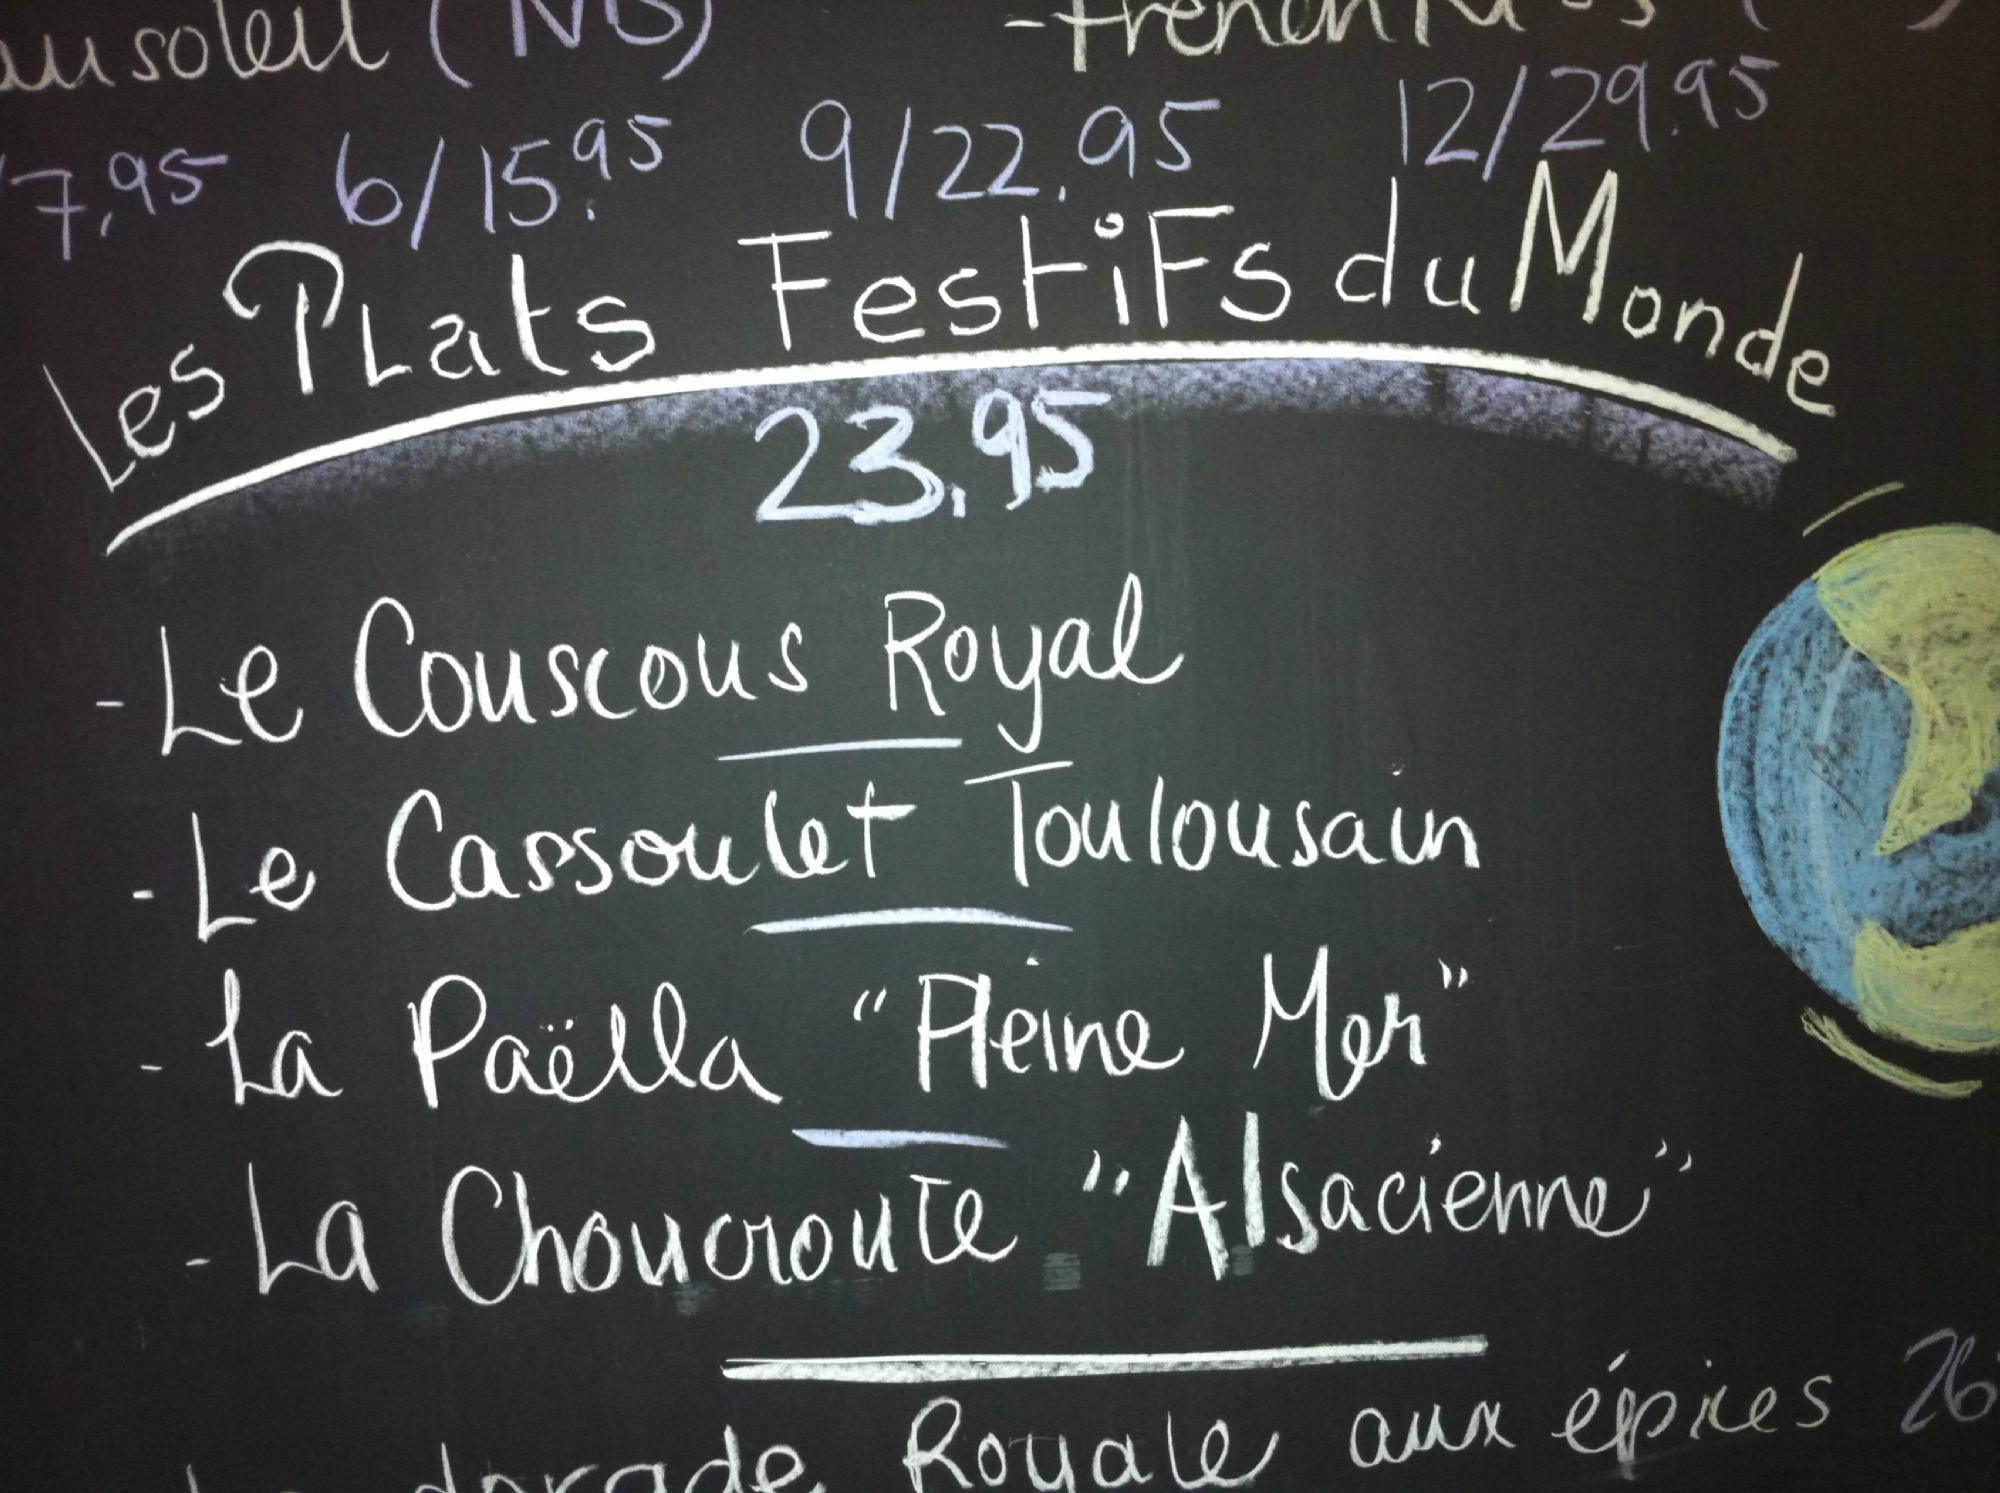 (NB)
7.95 6/15.95 9/22.95 12/29.95
Les Plats Festifs du Monde
23.95
- Le Couscous Royal
- Le Cassoulet Toulousain
- La Paëlla "Pleine Mer"
- La Choucroute "Alsacienne"
dorade Royale aux épices 26